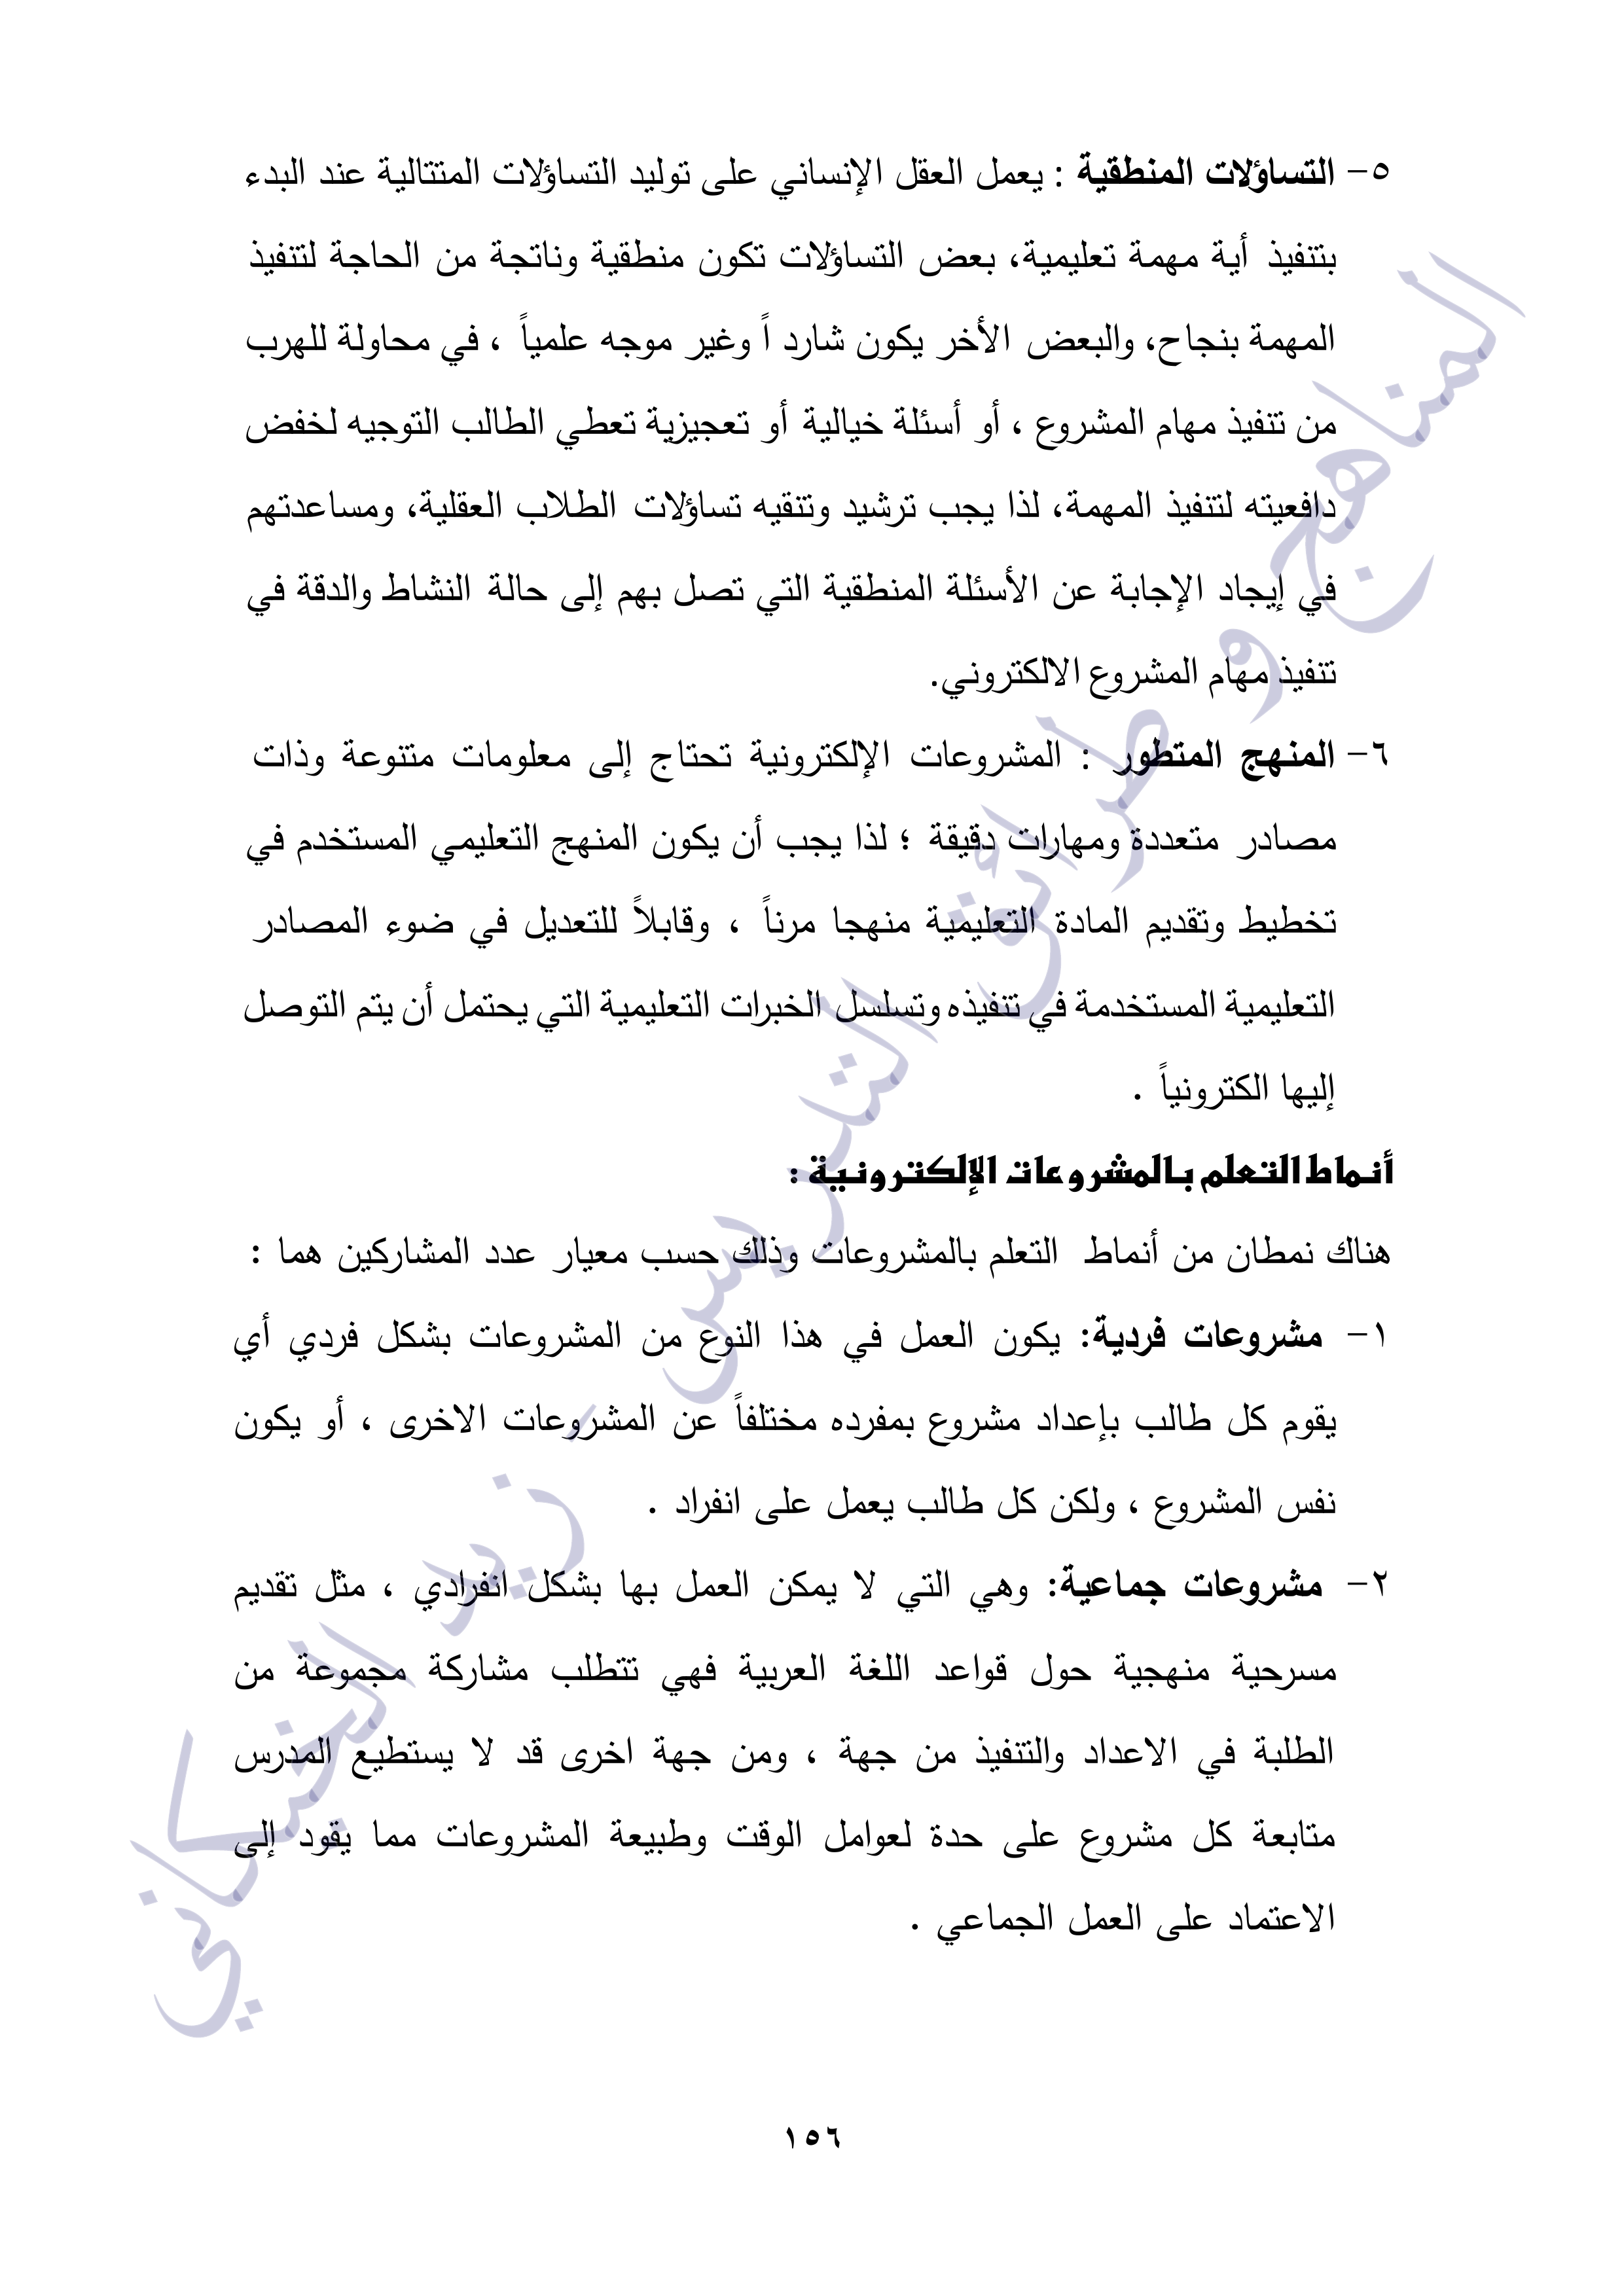 ٥- التساؤلات المنطقية : يعمل العقل الإنساني على توليد التساؤلات المتتالية عند البدء
بتنفيذ أية مهمة تعليمية، بعض التساؤلات تكون منطقية وناتجة من الحاجة لتنفيذ
المهمة بنجاح، والبعض الأخر يكون شارد اً وغير موجه علمياً ، في محاولة للهرب
من تنفيذ مهام المشروع ، أو أسئلة خيالية أو تعجيزية تعطي الطالب التوجيه لخفض
دافعيته لتنفيذ المهمة، لذا يجب ترشيد وتنقيه تساؤلات الطلاب العقلية، ومساعدتهم
في إيجاد الإجابة عن الأسئلة المنطقية التي تصل بهم إلى حالة النشاط والدقة في
تنفيذ مهام المشروع الالكتروني.
٦- المنهج المتطور : المشروعات الإلكترونية تحتاج إلى معلومات متنوعة وذات
مصادر متعددة ومهارات دقيقة ؛ لذا يجب أن يكون المنهج التعليمي المستخدم في
تخطيط وتقديم المادة التعليمية منهجا مرناً ، وقابلاً للتعديل في ضوء المصادر
التعليمية المستخدمة في تنفيذه وتسلسل الخبرات التعليمية التي يحتمل أن يتم التوصل
إليها الكترونياً .
أنماط التعلم بالمشروعات الإلكترونية :
هناك نمطان من أنماط التعلم بالمشروعات وذلك حسب معيار عدد المشاركين هما :
١- مشروعات فردية: يكون العمل في هذا النوع من المشروعات بشكل فردي أي
يقوم كل طالب بإعداد مشروع بمفرده مختلفاً عن المشروعات الاخرى ، أو يكون
نفس المشروع ، ولكن كل طالب يعمل على انفراد .
٢- مشروعات جماعية: وهي التي لا يمكن العمل بها بشكل انفرادي ، مثل تقديم
مسرحية منهجية حول قواعد اللغة العربية فهي تتطلب مشاركة مجموعة من
الطلبة في الاعداد والتنفيذ من جهة ، ومن جهة اخرى قد لا يستطيع المدرس
متابعة كل مشروع على حدة لعوامل الوقت وطبيعة المشروعات مما يقود إلى
الاعتماد على العمل الجماعي .
١٥٦
المناهج و طرائق التدريس - زيد الخيكاني